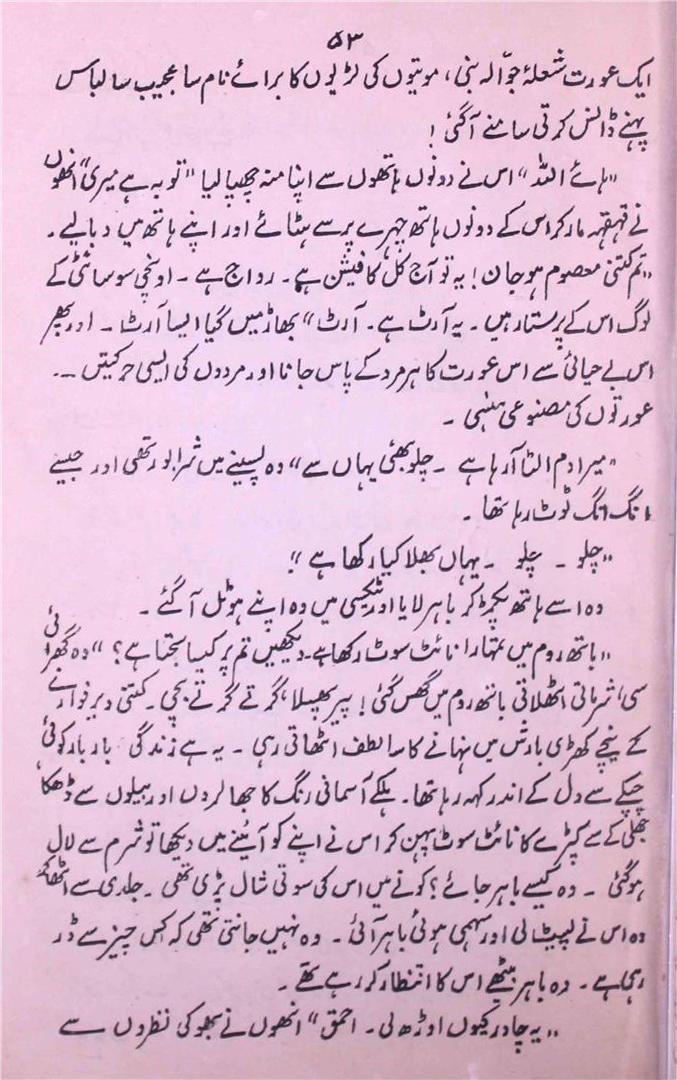 ۵۳
ایک عورت شعلۂ جوّالہ بنی، موتیوں کی لڑیوں کا برائے نام سا عجیب سا لباس
پہنے ڈانس کرتی سامنے آگئی!
"ہائے اللہ" اس نے دونوں ہاتھوں سے اپنا منہ چھپا لیا "توبہ ہے میری" انھوں
نے قہقہہ مار کر اس کے دونوں ہاتھ چہرے پر سے ہٹائے اور اپنے ہاتھ میں دبا لیے۔
"تم کتنی معصوم ہو جان! یہ تو آج کل کا فیشن ہے۔ رواج ہے۔ اونچی سوسائٹی کے
لوگ اس کے پرستار ہیں۔ یہ آرٹ ہے۔ آرٹ" بھاڑ میں گیا ایسا آرٹ ۔ اور پھر
اس بے حیائی سے اس عورت کا ہر مرد کے پاس جانا اور مردوں کی ایسی حرکتیں ۔۔
عورتوں کی مصنوعی ہنسی۔
"میرا دم الٹا آرہا ہے ۔ چلو بھئی یہاں سے" وہ پسینے میں شرابور تھی اور جیسے
انگ انگ ٹوٹ رہا تھا۔
"چلو ۔ چلو ۔ یہاں بھلا کیا رکھا ہے"۔
وہ اسے ہاتھ پکڑ کر باہر لایا اور ٹیکسی میں وہ اپنے ہوٹل آگئے۔
"باتھ روم میں تمہارا نائٹ سوٹ رکھا ہے۔ دیکھیں تم پر کیسا سجتا ہے؟" وہ گھبرائی
سی، شرماتی اٹھلاتی باتھ روم میں گھس گئی! پیر پھسلا، گرتے گرتے بچی۔ کتنی دیر فوارے
کے نیچے کھڑی بارش میں نہانے کا سا لطف اٹھاتی رہی۔ یہ ہے زندگی بار بار کوئی
چپکے سے دل کے اندر کہہ رہا تھا۔ ہلکے آسمانی رنگ کا جھالردوں اور بیلوں سے ڈھکا
جھلی کے سے کپڑے کا نائٹ سوٹ پہن کر اس نے اپنے کو آئینے میں دیکھا تو شرم سے لال
ہوگئی ۔ وہ کیسے باہر جائے؟ کونے میں اس کی سوتی شال پڑی تھی۔ جلدی سے اٹھا کر
وہ اس نے لپیٹ لی اور سہمی ہوئی باہر آئی۔ وہ نہیں جانتی تھی کہ کس چیز سے ڈر
رہی ہے۔ وہ باہر بیٹھے اس کا انتظار کر رہے تھے۔
"یہ چادر کیوں اوڑھ لی۔ احمق" انھوں نے بھوکی نظروں سے